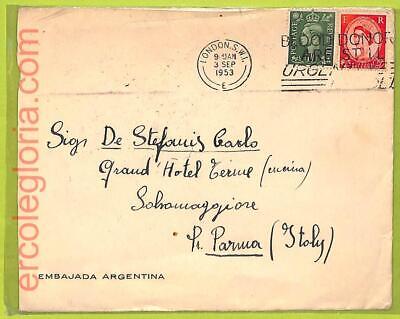 ercolegloria.com
LONDON. S.W.1.
9-AM
3 SEP
1953
E
E R
BLOOD DONORS
ARE STILL
URGENTLY
Sigr De Stefanis Carlo
Grand Hotel Terme (cucina)
Salsomaggiore
Pr. Parma (Italy)
EMBAJADA ARGENTINA